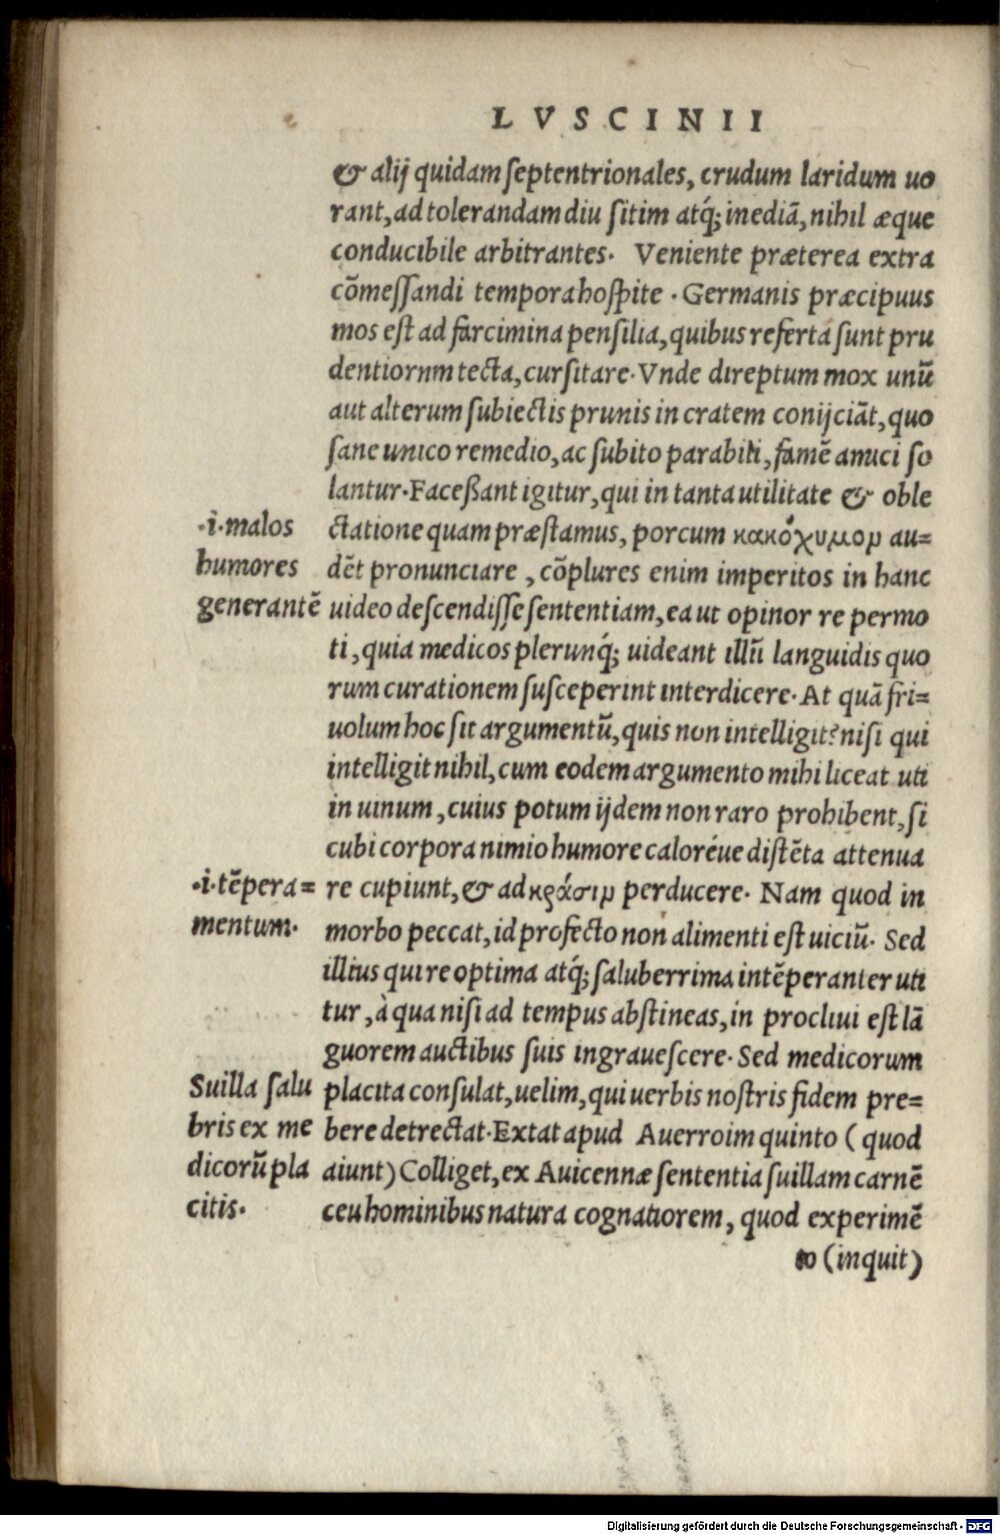 LVSCINII
& alij quidam ſeptentrionales, crudum laridum uo
rant, ad tolerandam diu ſitim atq́; inediã, nihil æque
conducibile arbitrantes. Veniente præterea extra
cõmeſſandi tempora hoſpite. Germanis præcipuus
mos eſt ad farcimina penſilia, quibus referta ſunt pru
dentiornm tecta, curſitare. Vnde direptum mox unũ
aut alterum ſubiectis prunis in cratem conijciãt, quo
ſane unico remedio, ac ſubito parabili, famẽ amici ſo
lantur. Faceßant igitur, qui in tanta utilitate & oble
ctatione quam præſtamus, porcum κακόχυμον au=
dẽt pronunciare, cõplures enim imperitos in hanc
uideo deſcendiſſe ſententiam, ea ut opinor re permo
ti, quia medicos plerunq́; uideant illũ languidis quo
rum curationem ſuſceperint interdicere. At quã fri=
uolum hoc ſit argumentũ, quis non intelligit? niſi qui
intelligit nihil, cum eodem argumento mihi liceat uti
in uinum, cuius potum ijdem non raro prohibent, ſi
cubi corpora nimio humore caloréue diſtẽta attenua
re cupiunt, & ad κράσιν perducere. Nam quod in
morbo peccat, id profecto non alimenti eſt uiciũ. Sed
illius qui re optima atq́; ſaluberrima intẽperanter uti
tur, à qua niſi ad tempus abſtineas, in procliui eſt lã
guorem auctibus ſuis ingraueſcere. Sed medicorum
placita conſulat, uelim, qui uerbis noſtris fidem pre=
bere detrectat. Extat apud Auerroim quinto (quod
aiunt) Colliget, ex Auicennæ ſententia ſuillam carnẽ
ceu hominibus natura cognatiorem, quod experimẽ
to (inquit)
.i. malos
humores
generantẽ
.i. tẽpera=
mentum.
Suilla ſalu
bris ex me
dicorũ pla
citis.
Digitalisierung gefördert durch die Deutsche Forschungsgemeinschaft - DFG